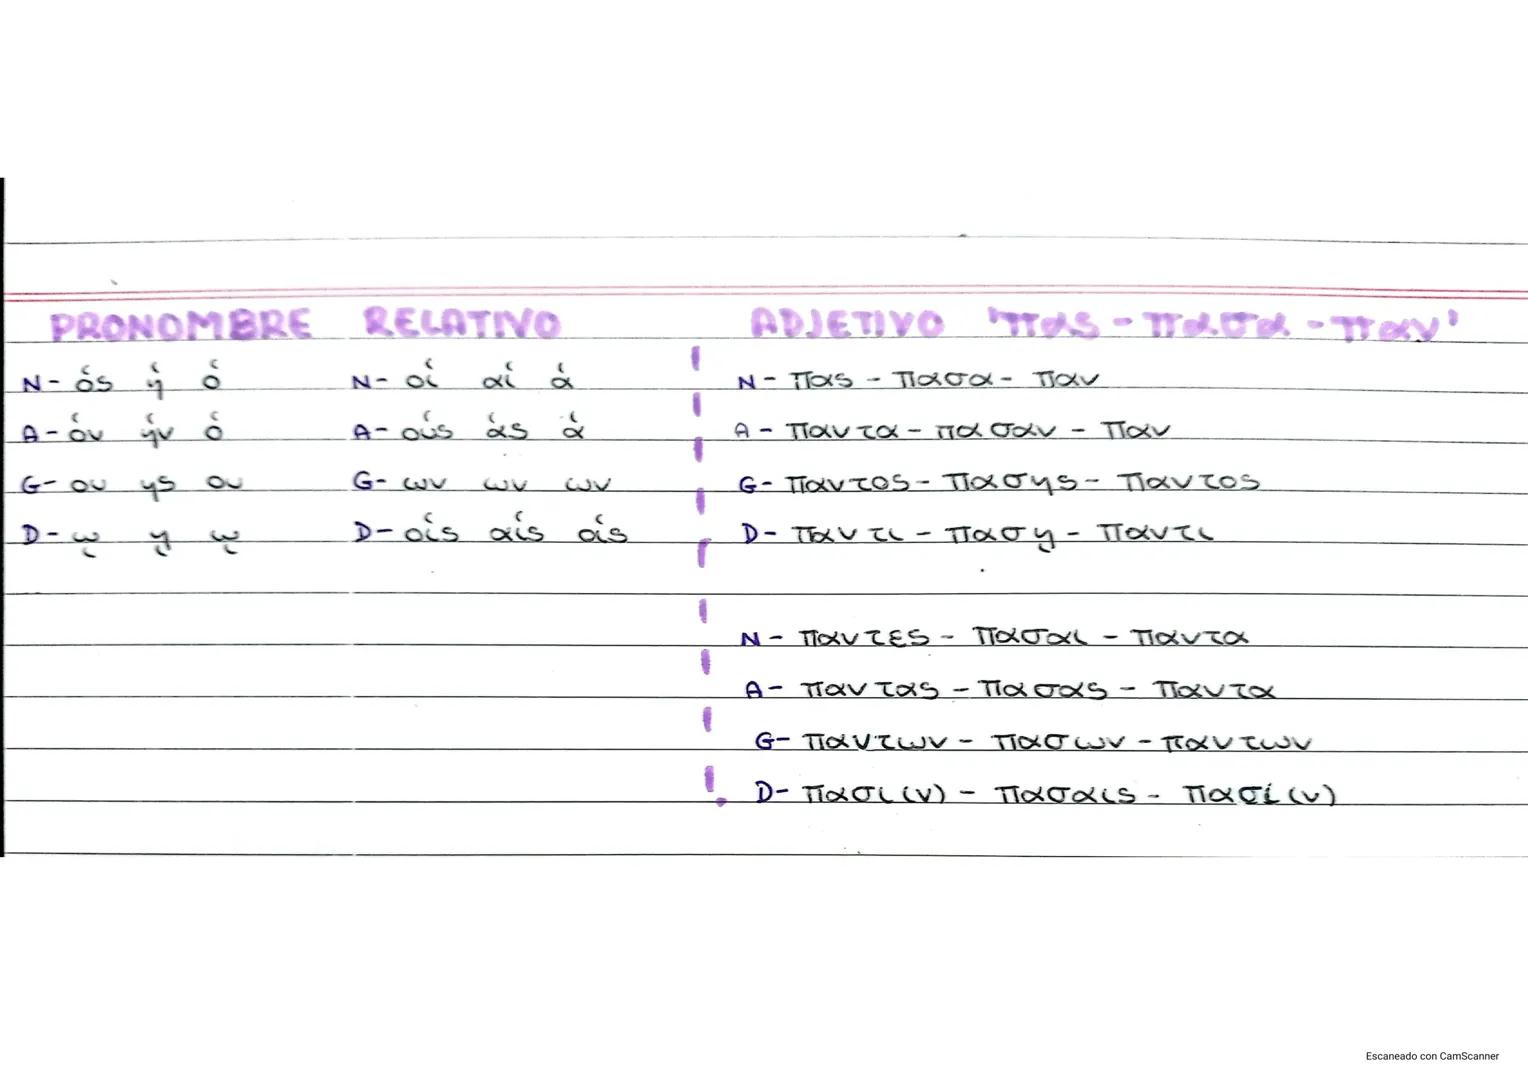 PRONOMBRE RELATIVO
N- ὅς ἥ ὅ N- οἵ αἵ ἅ
A- ὅν ἥν ὅ A- οὕς ἅς ἅ
G- ου ης ου G- ων ων ων
D- ῳ ῃ ῳ D- οἵς αἵς οἵς
ADJETIVO 'πας - πασα - παν'
N- πας - πασα - παν
A- παντα - πασαν - παν
G- παντος - πασης - παντος
D- παντι - πασῃ - παντι
N- παντες - πασαι - παντα
A- παντας - πασας - παντα
G- παντων - πασων - παντων
D- πασι(ν) - πασαις - πασί(ν)
Escaneado con CamScanner